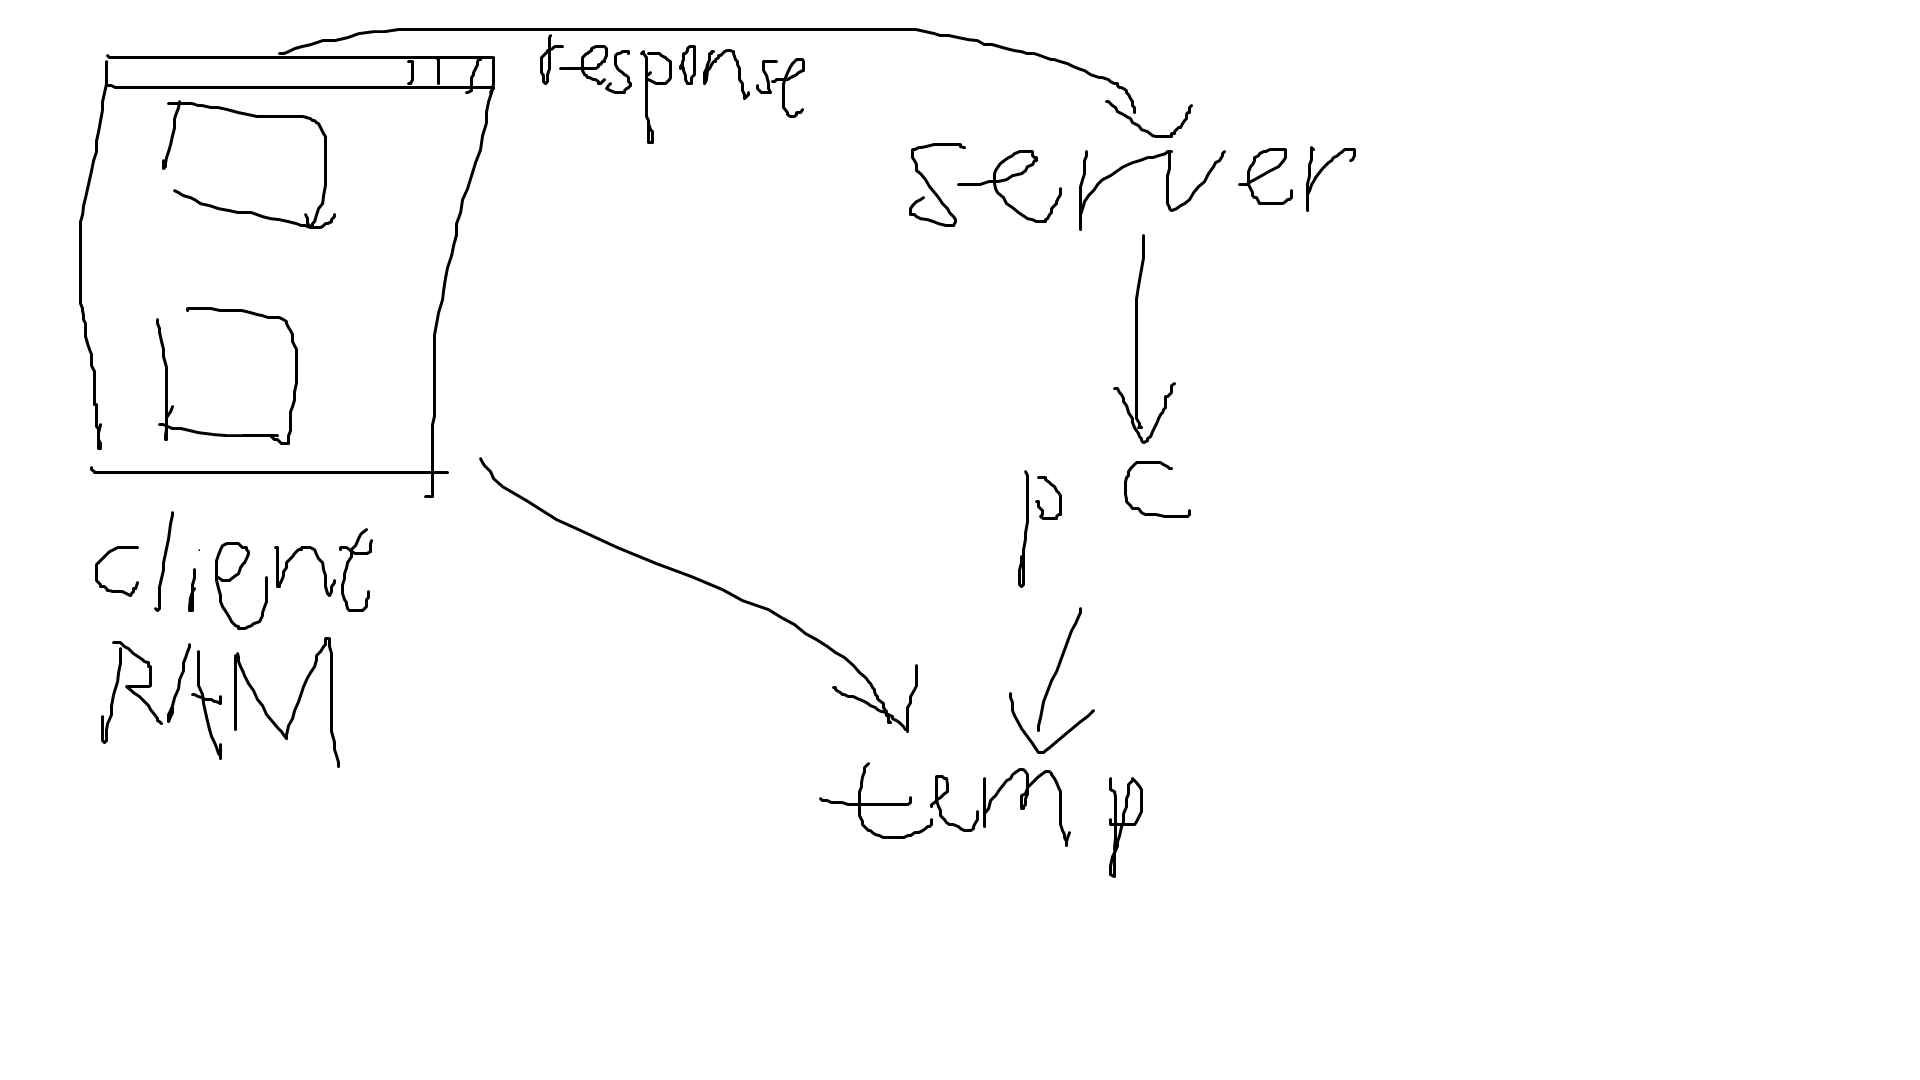 response
server
p c
client
RAM
temp